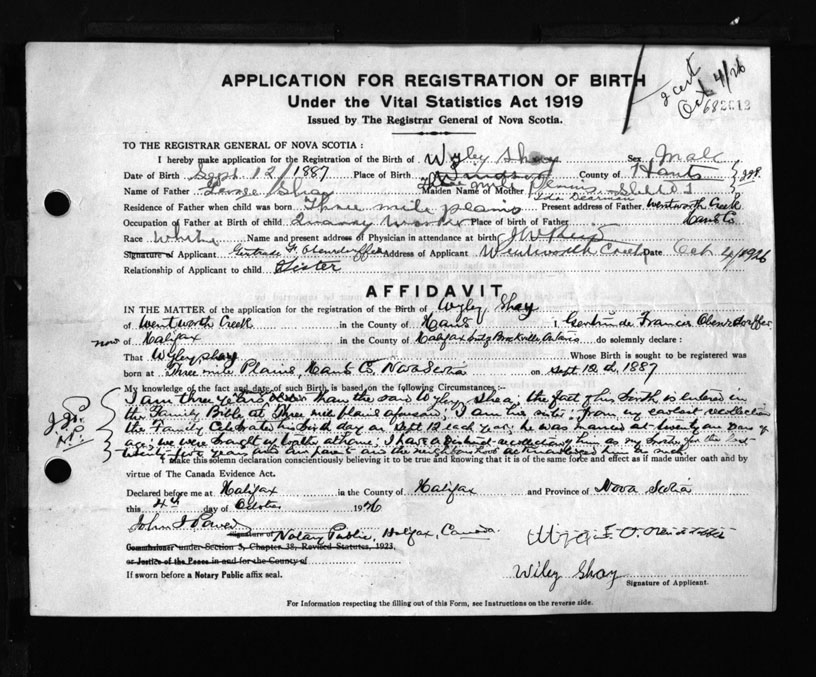 2 cert
Oct 4/26
APPLICATION FOR REGISTRATION OF BIRTH
Under the Vital Statistics Act 1919
Issued by The Registrar General of Nova Scotia.
TO THE REGISTRAR GENERAL OF NOVA SCOTIA :
I hereby make application for the Registration of the Birth of Wyley Shay Sex Male
Date of Birth Sept. 12/1887 Place of Birth Windsor County of Hants
Three Mile Plains
Name of Father George Shay Maiden Name of Mother
Ida Dearman
Residence of Father when child was born Three mile plains Present address of Father Wentworth Creek
Hants Co.
Occupation of Father at Birth of child Quarry Worker Place of birth of Father
Race White Name and present address of Physician in attendance at birth
Signature of Applicant Gertrude F. Address of Applicant Wentworth Creek Date Oct 4/1926
Relationship of Applicant to child Sister
AFFIDAVIT
IN THE MATTER of the application for the registration of the Birth of Wyley Shay
of Wentworth Creek in the County of Hants I. Gertrude Frances
now of Halifax in the County of Halifax Brockville Ontario do solemnly declare :
That Wyley Shay Whose Birth is sought to be registered was
born at Three mile Plains, Hants Co, Nova Scotia on Sept 12th, 1887
My knowledge of the fact and date of such Birth is based on the following Circumstances :—
I am three years older than the said Wyley Shea; the fact of his birth is entered in
the Family Bible at Three mile plains aforesaid; I am his sister; from my earliest recollection
the Family Celebrated his birth day on Sept 12 each year; he was married at twenty one years of
age; we were brought up together at home; I have a distinct recollection of him as my brother for the last
twenty-five years and our parents and the neighbourhood acknowledged him as such.
I make this solemn declaration conscientiously believing it to be true and knowing that it is of the same force and effect as if made under oath and by
virtue of The Canada Evidence Act.
Declared before me at Halifax in the County of Halifax and Province of Nova Scotia
this 4th day of October 1926
John J Power
Signature of Notary Public, Halifax, Canada
Commissioner under Section 3, Chapter 38, Revised Statutes, 1923,
or Justice of the Peace in and for the County of
If sworn before a Notary Public affix seal.
Wiley Shay
Signature of Applicant.
For Information respecting the filling out of this Form, see Instructions on the reverse side.